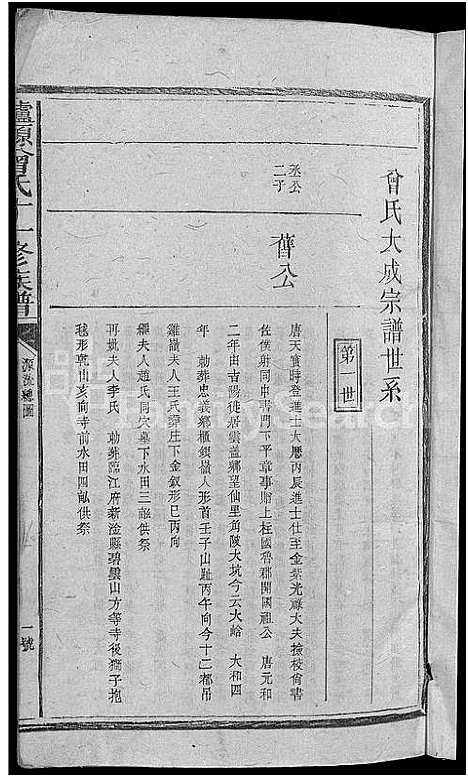 曾氏大成宗譜世系
第一世
丞公
二子
舊公
唐天寶時登進士大曆丙辰進士仕至金紫光祿大夫撿校尙書
佐僕射同中書門下平章事贈上柱國魯郡開國祖公 唐元和
二年由吉陽徙居雲蓋鄉望仙里角陂大坑今云大哈 大和四
年 勅葬忠義鄉櫃鋇嶺人形首壬子山趾丙午向今十二都吊
鷄嶺夫人王氏譚庄下金釵形巳丙向
繼夫人趙氏同穴墓下水田三畆供祭
再娶夫人李氏 勅葬臨江府新淦縣碧雲山方等寺後獅子抱
毬形乾山亥向寺前水田四畆供祭
源曾氏十一修族譜
源流總圖
一號
FamilySearch